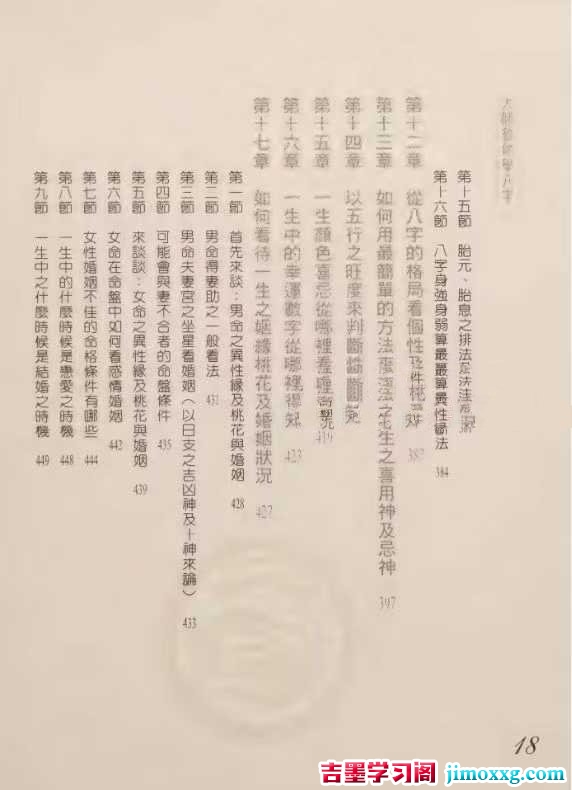 大師教你學八字
第十五節 胎元、胎息之排法
第十六節 八字身強身弱算 384
第十二章 從八字的格局看個性
第十三章 如何用最簡單的方法 生之喜用神及忌神 397
第十四章 以五行之旺度來判斷
第十五章 一生顏色喜忌從哪裡看 419
第十六章 一生中的幸運數字從哪裡得知 423
第十七章 如何看待一生之姻緣桃花及婚姻狀況 427
第一節 首先來談：男命之異性緣及桃花與婚姻 428
第二節 男命得妻助之一般看法 431
第三節 男命夫妻宮之坐星看婚姻（以日支之吉凶神及十神來論） 433
第四節 可能會與妻不合者的命盤條件 435
第五節 來談談：女命之異性緣及桃花與婚姻 439
第六節 女命在命盤中如何看感情婚姻 442
第七節 女性婚姻不佳的命格條件有哪些 444
第八節 一生中的什麼時候是戀愛之時機 448
第九節 一生中之什麼時候是結婚之時機 449
18
吉墨学习阁 jimoxxg.com